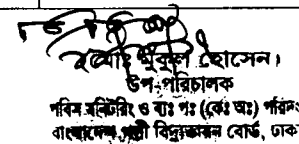 মোঃ মুকুল হোসেন।
উপ-পরিচালক
পবিস মনিটরিং ও ব্যঃ পঃ (কেঃ অঃ) পরিদঃ
বাংলাদেশ পল্লী বিদ্যুতায়ন বোর্ড, ঢাকা